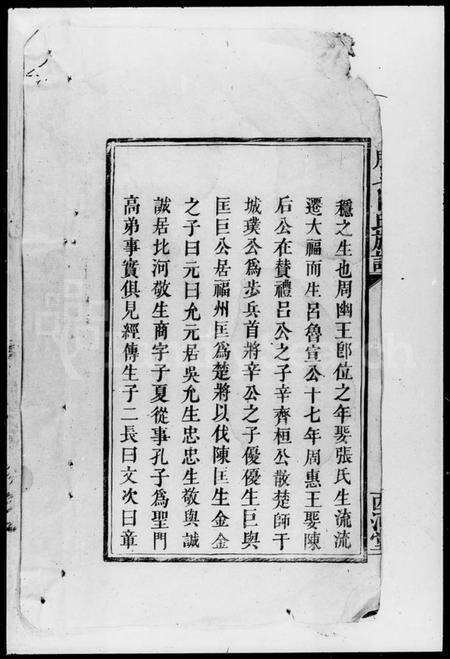 穩之生也周幽王卽位之年娶張氏生流流
遷大福而生呂魯宣公十七年周惠王娶陳
后公在贊禮呂公之子辛齊桓公散楚師于
城璞公爲步兵首將辛公之子優優生巨與
匡巨公居福州匡爲楚將以伐陳匡生金金
之子曰元曰允元居吳允生忠忠生敬與誠
誠居比河敬生商字子夏從事孔子爲聖門
高弟事實俱見經傳生子二長曰文次曰章
氏族譜
西河堂